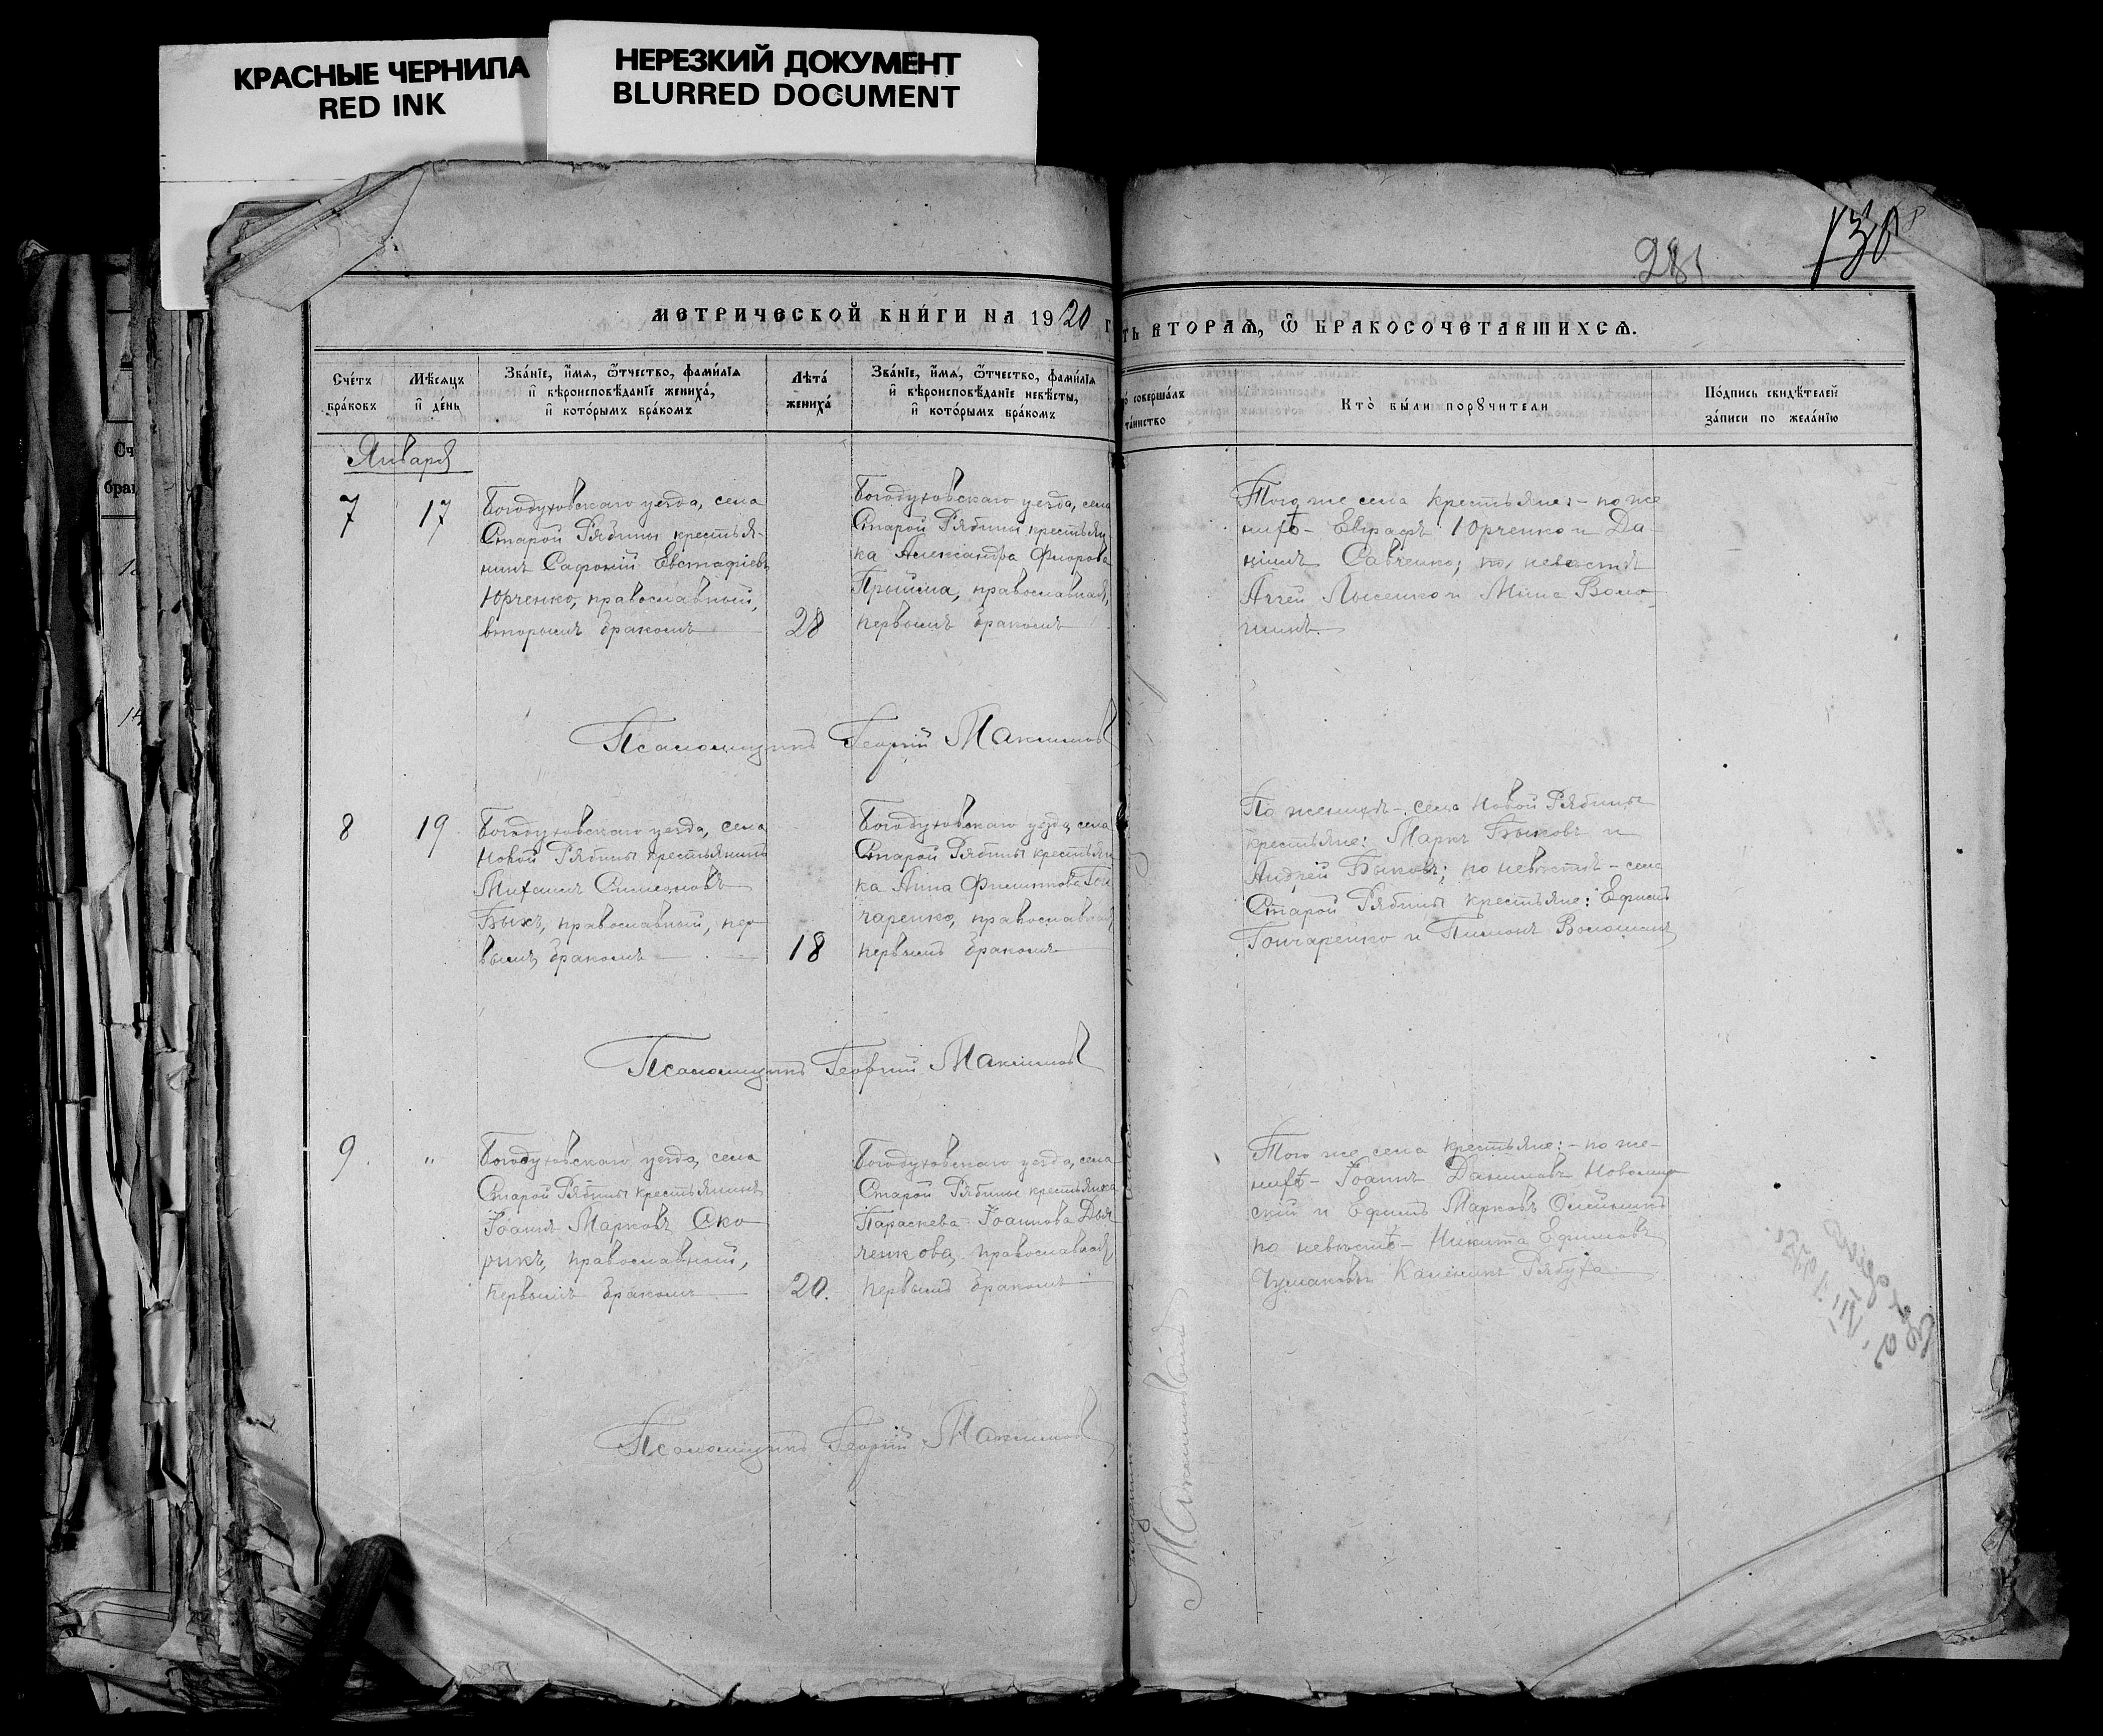 КРАСНЫЕ ЧЕРНИЛА
RED INK
НЕРЕЗКИЙ ДОКУМЕНТ
BLURRED DOCUMENT
281
130
МЕТРИЧЕСКОЙ КНИ́ГИ НА 1920 Г
ТЬ ВТОРАѦ, Ѿ БРАКОСОЧЕТАВШИХСѦ.
Сче́тъ
бра́ковъ
Мѣ́сяцъ
и҆ де́нь
Зва́нїе, и҆́мѧ, ѻ҆́тчество, фами́лїѧ
и҆ вѣроисповѣ́данїе жениха̀,
и҆ кото́рымъ бра́комъ
Лѣта̀
жениха̀
Зва́нїе, и҆́мѧ, ѻ҆́тчество, фами́лїѧ
и҆ вѣроисповѣ́данїе невѣ́сты,
и҆ кото́рымъ бра́комъ
соверша́лъ
та́инство
Кто̀ бы́ли порꙋчи́тели
По́дпись свидѣ́телей
за́писи по жела́нїю
Января
7
17
Богодуховскаго уезда, села
Старой Рябины крестья-
нинъ Сафоній Евстафіевъ
Юрченко, православный,
вторымъ бракомъ
28
Богодуховскаго уезда, села
Старой Рябины крестьян
ка Александра Флорова
Прыйма, православная,
первымъ бракомъ
Того же села крестьяне:- по же
нихѣ- Евграфъ Юрченко и Да-
ніилъ Савченко; по невестѣ
Аггей Лысенко и Мина Воло-
шинъ.
Псаломщикъ Георгій Максимов
8
19
Богодуховскаго уезда, села
Новой Рябины крестьянинъ
Михаилъ Симеоновъ
Быкъ, православный, пер-
вымъ бракомъ
18
Богодуховскаго уезда, села
Старой Рябины крестьян
ка Анна Филиппова Гон
чаренко, православная
первымъ бракомъ
По женихѣ - села Новой Рябины
крестьяне: Маркъ Быковъ и
Андрей Быковъ; по невѣстѣ - села
Старой Рябины крестьяне: Ефимъ
Гончаренко и Пимонъ Волошинъ
Псаломщикъ Георгій Максимов
9.
"
Богодуховскаго уезда, села
Старой Рябины крестьянинъ
Іоаннъ Марковъ Ско
рикъ, православный,
первымъ бракомъ
20.
Богодуховскаго уезда, села
Старой Рябины крестьянка
Параскева Іоаннова
ченкова, православная,
первымъ бракомъ
Того же села крестьяне:- по же-
нихѣ- Іоаннъ Даниловъ
и Ефимъ Марковъ Олейникъ
по невѣстѣ - Никита Ефимовъ
Чумаковъ Каленикъ Рябуха
Псаломщикъ Георгій Максимов